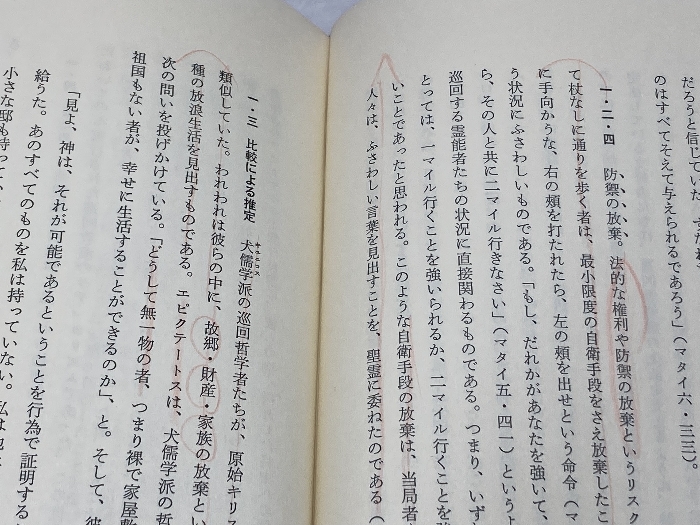 だろうと信じて
のはすべてそえて与えられるであろう」（マタイ六・三三）。
一・二・四 防禦の放棄。法的な権利や防禦の放棄というリスク
て杖なしに通りを歩く者は、最小限度の自衛手段をさえ放棄したこ
に手向かうな、右の頬を打たれたら、左の頬を出せという命令（マ
う状況にふさわしいものである。「もし、だれかがあなたを強いて、
ら、その人と共に二マイル行きなさい」（マタイ五・四一）というよ
巡回する霊能者たちの状況に直接関わるものである。つまり、いず
とっては、一マイル行くことを強いられるか、二マイル行くことを強
いことであったと思われる。このような自衛手段の放棄は、当局者
人々は、ふさわしい言葉を見出すことを、聖霊に委ねたのである（
一・三 比較による推定 犬儒学派の巡回哲学者たちが、原始キリス
キュニコス
類似していた。われわれは彼らの中に、故郷・財産・家族の放棄とい
種の放浪生活を見出すものである。エピクテートスは、犬儒学派の哲
次の問いを投げかけている。「どうして無一物の者、つまり裸で家屋敷
祖国もない者が、幸せに生活することができるのか」、と。そして、彼
「見よ、神は、それが可能であるということを行為で証明する
給うた。あのすべてのものを私は持っていない。私は
小さな邸も持って